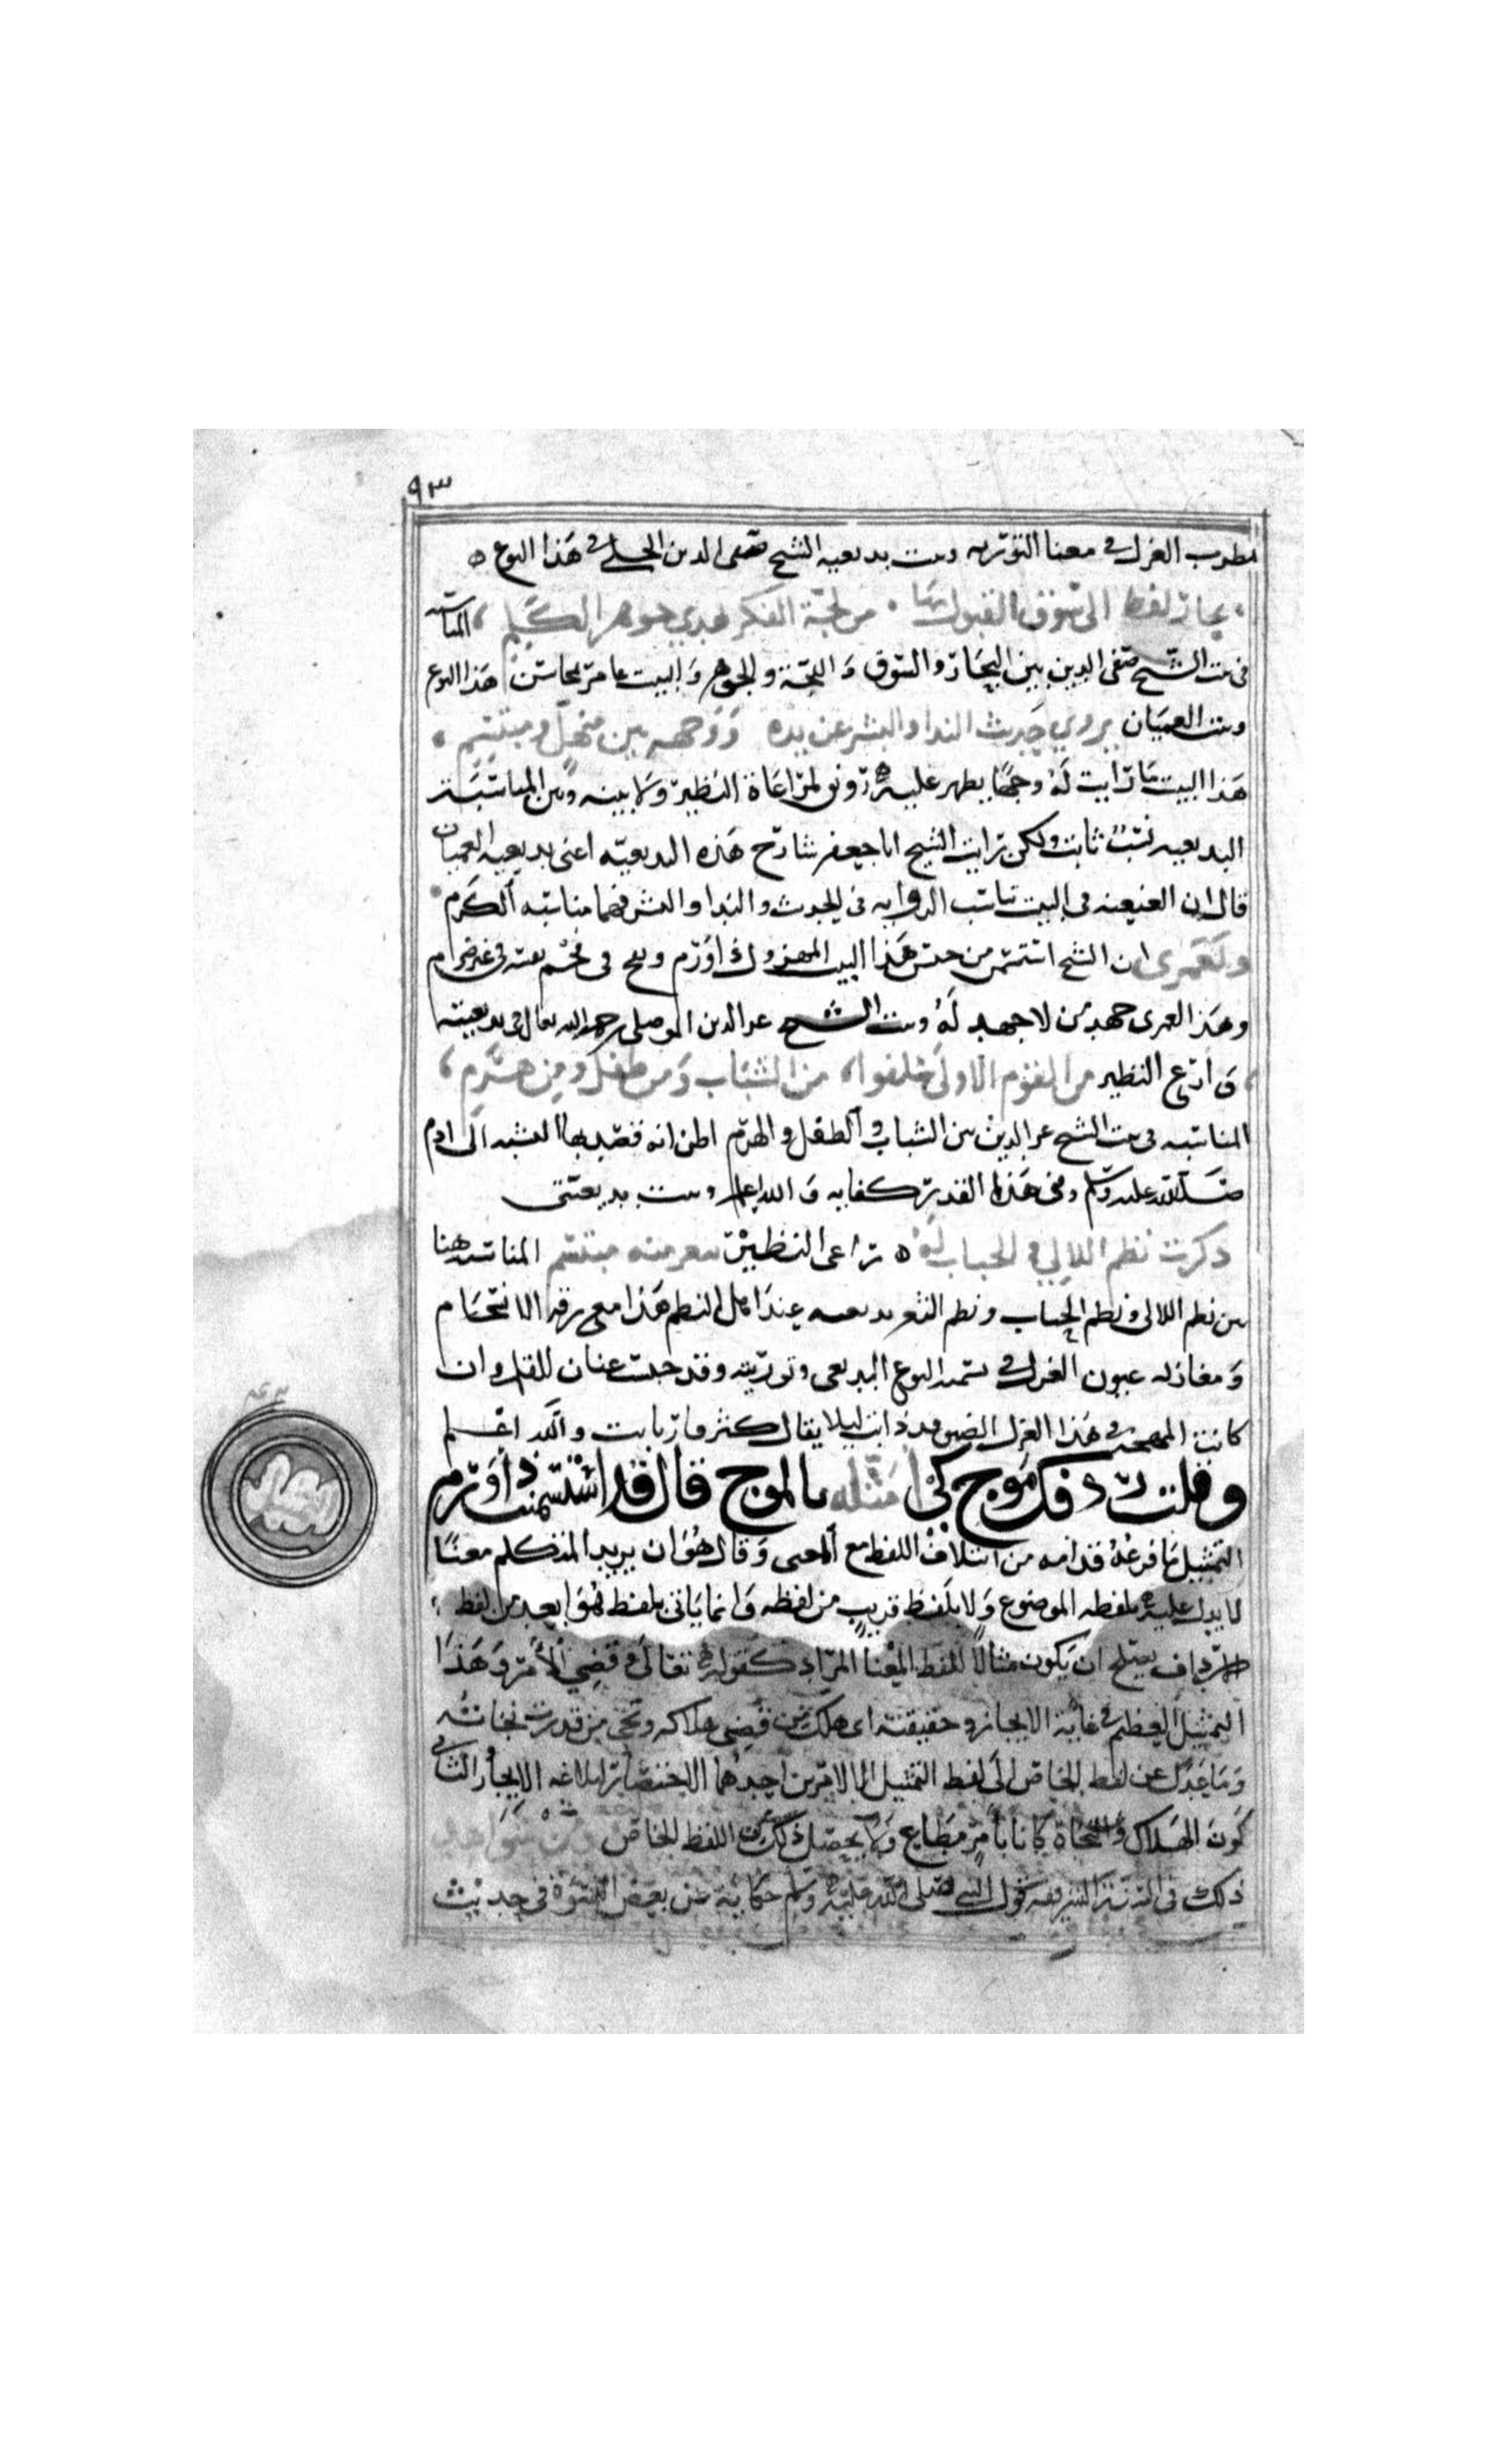 ٩٣
بطرب الغزل في معنا التوريه وبيت بديعيه الشيخ صفي الدين الحلي في هذا النوع
تجار لفظ الى سوق القبول بها من لجة الفكر تهدي جوهر الكلم المناسبه
في بيت الشيخ صفي الدين بين التجار والسوق واللجة والجوهر والبيت عامر بمحاسن هذا النوع
وبيت العميان يروي حديث الندا والبشر عن يده ووجهه بين منهل ومبتسم
هذا البيت ما رايت له وجها يظهر عليه رونق لمراعاة النظير ولا بينه وبين المناسبة
البديعيه نسب ثابت ولكن رايت الشيخ ابا جعفر شارح هذه البديعيه اعني بديعيه العميان
قال ان العنعنه في البيت تناسب الروايه في الحديث والندا والبشر فهما مناسبه الكرم
ولعمري ان الشيخ استسمن من حسن هذا البيت المهزول ذا ورم ونفخ في فحم بيته في غير ضرام
وهذا لعمري جهد من لا جهد له وبيت الشيخ عز الدين الموصلي رحمه الله تعالى في بديعيته
وارع النظير من القوم الاولى خلفوا من الشباب ومن طفل ومن هرم
المناسبه في بيت الشيخ عز الدين بين الشباب والطفل والهرم اظن انه قصد بها النسبه الى ادم
صلى الله عليه وسلم وفي هذا القدر كفايه والله اعلم وبيت بديعيتي
ذكرت نظم اللالي في الحباب له راعى النظير بثغر منه مبتسم المناسبه هنا
بين نظم اللالي ونظم الحباب ونظم الثغر بديعه عند اهل النظم هذا مع رقه الانسجام
ومغازله عيون الغزل في تسميه النوع البديعي وتوريته وقد حبست عنان القلم وان
كانت المهجة في هذا الغزل الضيق قد ذابت ليلا يقال كثر مارت بابت والله اعلم
وقلت ردفك موج كي امثله بالموج قال قد استسمنت ذا ورم
التمثيل مما فرعه قدامه من ائتلاف اللفظ مع المعنى وقال هو ان يريد المتكلم معنا
لا يدل عليه بلفظه الموضوع ولا بلفظ قريب من لفظه وانما ياتي بلفظ هو ابعد من لفظ
الارداف يصلح ان يكون مثالا للفظ المعنا المراد كقوله تعالى وقضي الامر وهذا
التمثيل العظيم في غاية الايجاز وحقيقته اي هلك من قضي هلاكه ونجى من قدرت نجاته
وما عدل عن لفظ الخاص الى لفظ التمثيل الا لامرين احدهما الاختصار لبلاغه الايجاز الثاني
كون الهلاك والنجاة كانا بامر مطاع ولا يحصل ذلك من اللفظ الخاص ومن شواهد
ذلك في السنة الشريفه قول النبي صلى الله عليه وسلم حكاية عن بعض النسوة في حديث